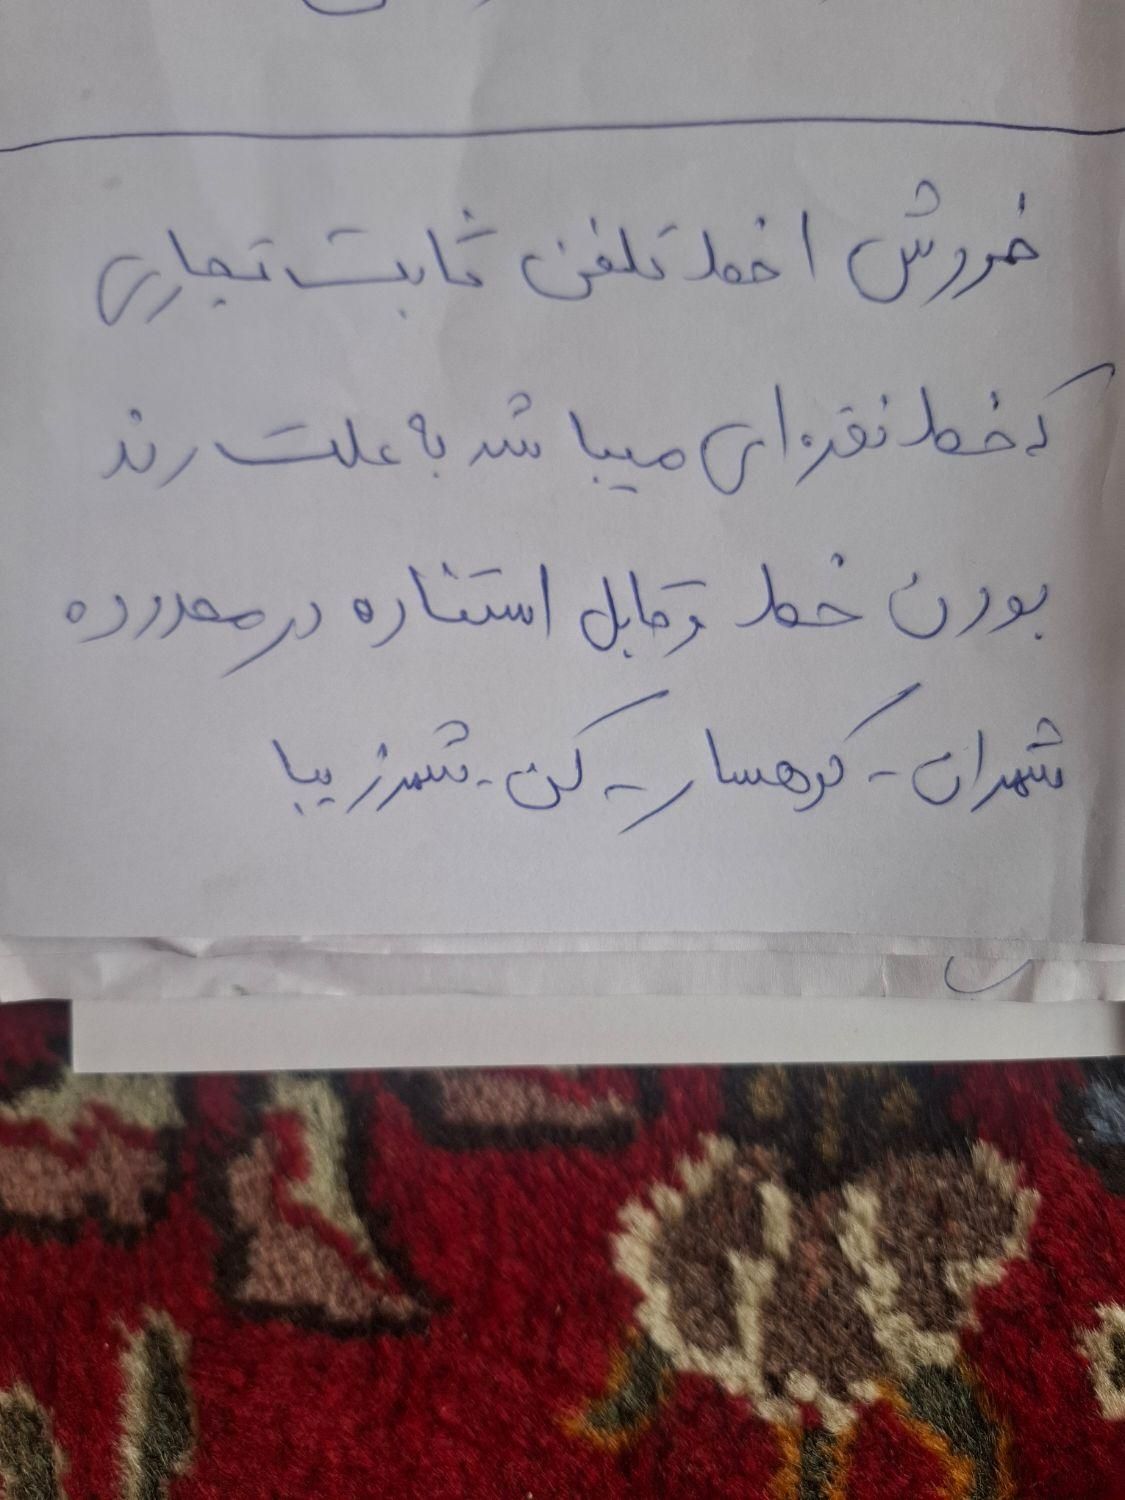 فروش ۱ خط تلفن ثابت تجاری
که خط نقره ای میباشد به علت رند
بودن خط و قابل استفاده در محدوده
شهران - کوهسار - کن - شهرزیبا